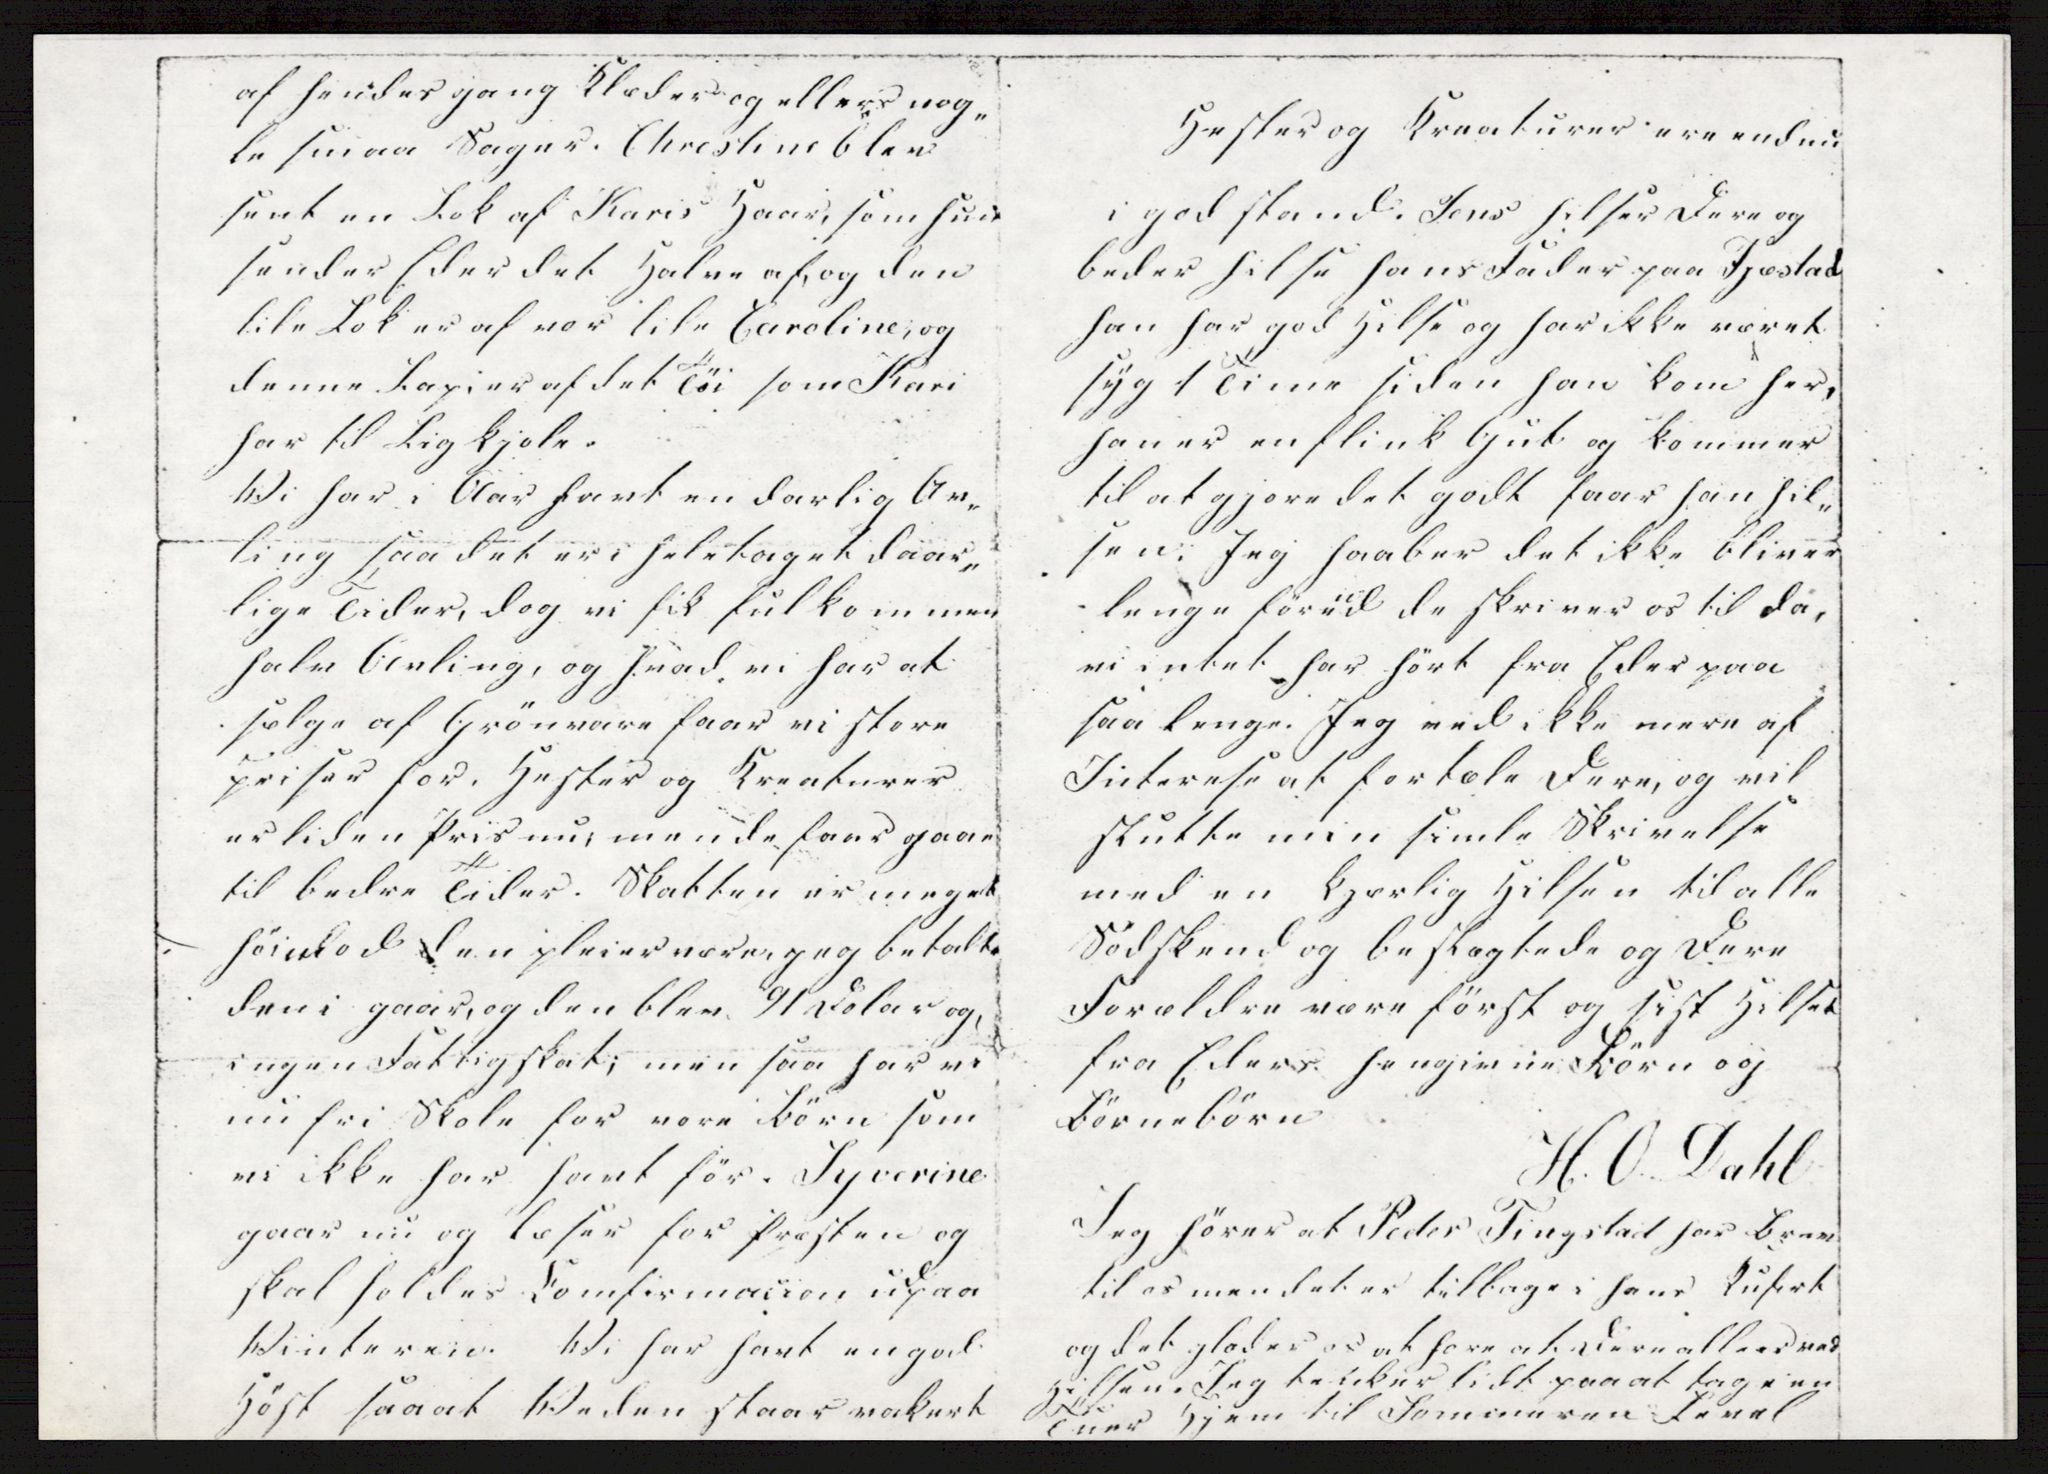 af hendes gang Klæder og ellers nog„
le smaa Sager. Chrestine blev
sent en Lok af Karis Haar, som hun
sender Eder det Halve af, og den
lile Lok er af vor lile Caroline, og
denne Lap er af det Töi som Kari
har til Ligkjole.
Wi har i Aar havt en darlig Av„
ling saa det er i heletaget daar„
lige Tider, dog vi fik fulkommen
halv Avling, og hvad vi har at
sælge af Grönvare faar vi store
priser for. Hester og Kreaturer
er liden Pris nu, men de faar gaae
til bedre Tider. Skatten er meget
höi mod den pleier være, jeg betalte
den i gaar, og den blev 91 Dolar og,
ingen Fattigskat; men saa har vi
nu fri Skole for vore Börn som
vi ikke har havt för. Syverine
gaar nu og læser for Presten og
skal holdes Comfirmasion udpaa
Winteren. Wi har havt en god
Höst saa at Weden staar vakert
Hester og Kreaturer ere endnu
i god stand. Jens hilser Dere og
beder hilse hans Fader paa Tjostad
han har god Hilse og har ikke været
syg 1 Time siden han kom her,
han er en flink Gut og kommer
til at gjøre det godt faar han hil„
sen. Jeg haaber det ikke bliver
lenge förüd de skriver os til da,
vi intet har hört fra Eder paa
saa lenge. Jeg ved ikke mere af
Interese at fortæle Dere, og vil
slutte min simle Skrivelse
med en kjærlig Hilsen til alle
Södskend og beslægtede og Dere
Foræeldre være först og sist Hilset
fra Eders hengivne Börn og
Börnebörn
H. O. Dahl
Jeg hörer at Peder Tingstad har Brev
til os men det er tilbage i hans Kufert
og det glæder os at høre at Dere alle er ved
Hilsen. Jeg tenker lidt paa at tage en
Tuer Hjem til Sommeren Level